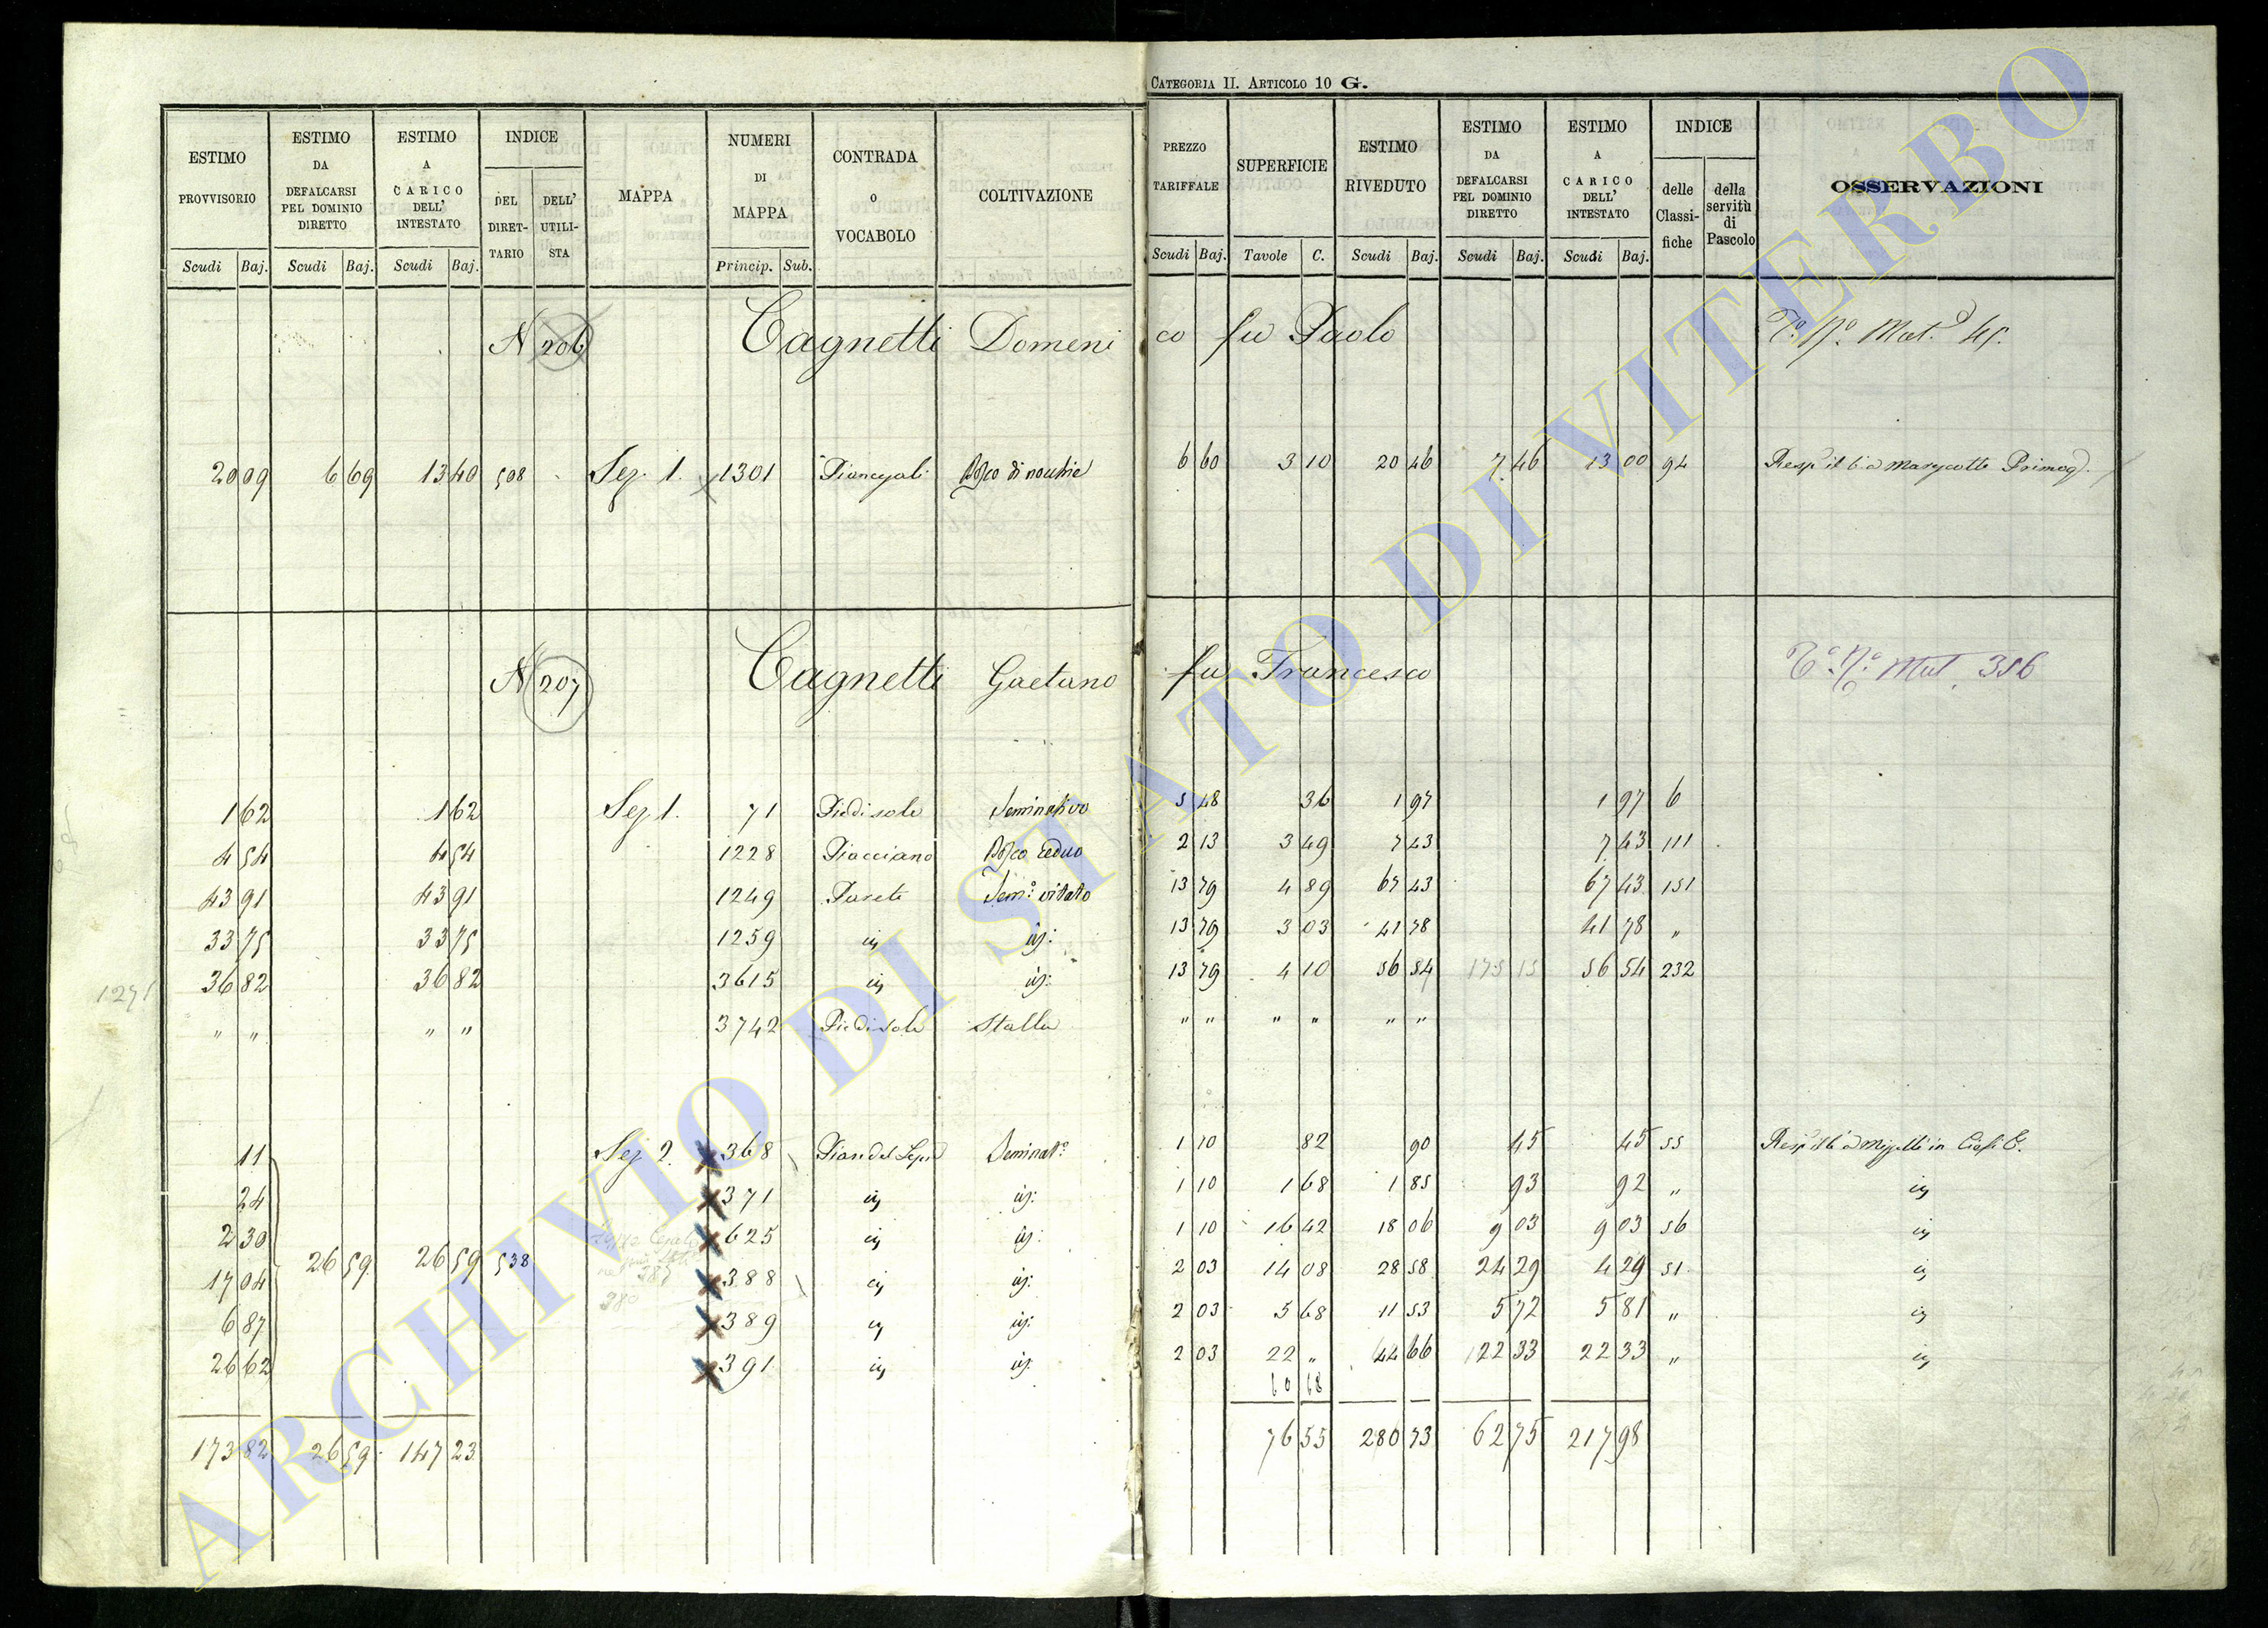 CATEGORIA II. ARTICOLO 10 G.
ESTIMO PROVVISORIO | ESTIMO DA DEFALCARSI PEL DOMINIO DIRETTO | ESTIMO A CARICO DELL' INTESTATO | INDICE | MAPPA | NUMERI DI MAPPA | CONTRADA O VOCABOLO | COLTIVAZIONE | PREZZO TARIFFALE | SUPERFICIE | ESTIMO RIVEDUTO | ESTIMO DA DEFALCARSI PEL DOMINIO DIRETTO | ESTIMO A CARICO DELL' INTESTATO | INDICE | OSSERVAZIONI
DEL DIRETTARIO | DELL' UTILISTA | delle Classifiche | della servitù di Pascolo
Scudi Baj. | Scudi Baj. | Scudi Baj. | Princip. Sub. | Scudi Baj. | Tavole C. | Scudi Baj. | Scudi Baj. | Scudi Baj.
N 206 Cagnetti Domenico fu Paolo Mat. 45.
20 09 | 6 69 | 13 40 | 508 | Sez. 1. | 1301 | Bosco di nocchie | 6 60 | 3 10 | 20 46 | 7 46 | 13 00 | 94 | Primog.
N 207 Cagnetti Gaetano fu Francesco Mut. 356
1 62 | 1 62 | Sez 1. | 71 | Piedisole | Seminativo | 5 48 | 36 | 1 97 | 1 97 | 6
4 54 | 4 54 | 1228 | Piacciano | Bosco ceduo | 2 13 | 3 49 | 7 43 | 7 43 | 111
43 91 | 43 91 | 1249 | Parete | Sem.º vitato | 13 79 | 4 89 | 67 43 | 67 43 | 151
33 75 | 33 75 | 1259 | 13 79 | 3 03 | 41 78 | 41 78 | "
1271 | 36 82 | 36 82 | 3615 | 13 79 | 4 10 | 56 54 | 175 15 | 56 54 | 232
" " | " " | 3742 | Piedisole | Stalla | " " | " " | " "
11 | Sez 2. | 368 | Seminat.º | 1 10 | 82 | 90 | 45 | 45 | 55
24 | 371 | 1 10 | 1 68 | 1 85 | 93 | 92 | "
2 30 | 625 | 1 10 | 16 42 | 18 06 | 9 03 | 9 03 | 56
26 59 | 26 59 | 538
17 04 | 388 | 2 03 | 14 08 | 28 58 | 24 29 | 4 29 | 51
6 87 | 389 | 2 03 | 5 68 | 11 53 | 5 72 | 5 81 | "
26 62 | 391 | 2 03 | 22 " | 44 66 | 22 33 | 22 33 | "
60 68
173 82 | 26 59 | 147 23 | 76 55 | 280 73 | 62 75 | 217 98
ARCHIVIO DI STATO DI VITERBO